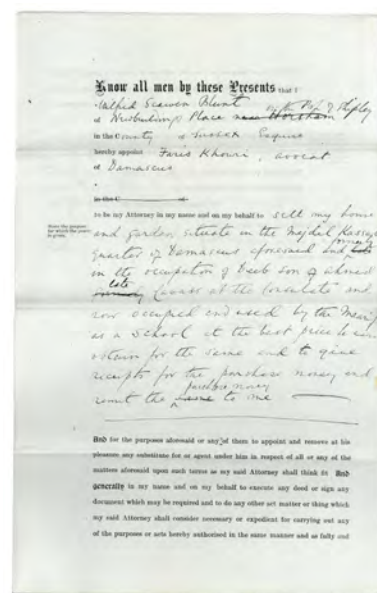 Know all men by these Presents that I
Wilfrid Scawen Blunt
of Newbuildings Place near Horsham in the Psh of Shipley
in the County of Sussex Esquire
hereby appoint Faris Khouri, avocat
of Damascus
in the C of
to be my Attorney in my name and on my behalf to sell my house
State the purpose for which the power is given.
and garden situate in the Mejdel
quarter of Damascus aforesaid and formerly late
in the occupation of Deeb son of Ahmed
late formerly Cavass at the Consulate and
now occupied and used by the
as a School at the best price he can
obtain for the same and to give
receipts for the purchase money and
remit the same purchase money to me
And for the purposes aforesaid or any of them to appoint and remove at his
pleasure any substitute for or agent under him in respect of all or any of the
matters aforesaid upon such terms as my said Attorney shall think fit And
generally in my name and on my behalf to execute any deed or sign any
document which may be required and to do any other act matter or thing which
my said Attorney shall consider necessary or expedient for carrying out any
of the purposes or acts hereby authorised in the same manner and as fully and